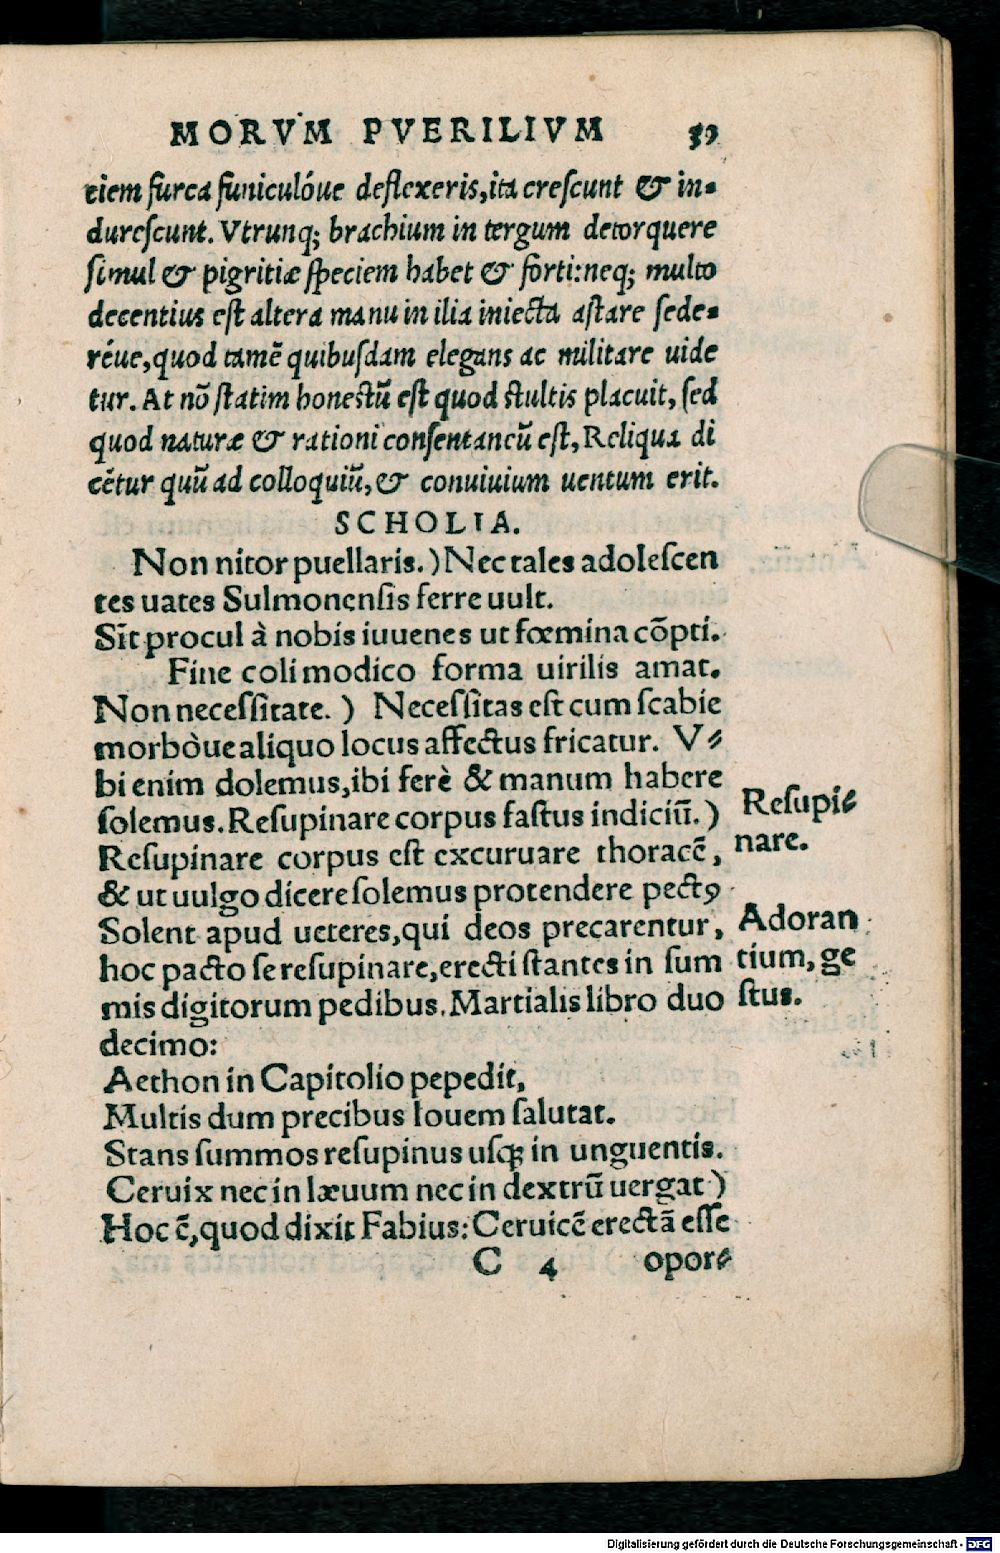 MORVM PVERILIVM 39
ciem furca funiculóue deflexeris, ita crescunt & in-
durescunt. Vtrunq; brachium in tergum detorquere
simul & pigritiæ speciem habet & forti: neq; multo
decentius est altera manu in ilia iniecta astare sede-
réue, quod tamē quibusdam elegans ac militare uide
tur. At nō statim honestū est quod stultis placuit, sed
quod naturæ & rationi consentaneū est, Reliqua di
cētur quū ad colloquiū, & conuiuium uentum erit.
SCHOLIA.
Non nitor puellaris.) Nec tales adolescen
tes uates Sulmonensis ferre uult.
Sīt procul à nobis iuuenes ut fœmina cōpti.
Fine coli modico forma uirilis amat.
Non necessitate. ) Necessitas est cum scabie
morbòue aliquo locus affectus fricatur. V-
bi enim dolemus, ibi ferè & manum habere
solemus. Resupinare corpus fastus indiciū.)
Resupi-
nare.
Resupinare corpus est excuruare thoracē,
& ut uulgo dicere solemus protendere pectꝰ
Solent apud ueteres, qui deos precarentur,
Adoran
tium, ge
stus.
hoc pacto se resupinare, erecti stantes in sum
mis digitorum pedibus. Martialis libro duo
decimo:
Aethon in Capitolio pepedit,
Multis dum precibus Iouem salutat.
Stans summos resupinus usq; in unguentis.
Ceruix nec in læuum nec in dextrū uergat)
Hoc ē, quod dixit Fabius: Ceruicē erectā esse
C 4 opor-
Digitalisierung gefördert durch die Deutsche Forschungsgemeinschaft - DFG